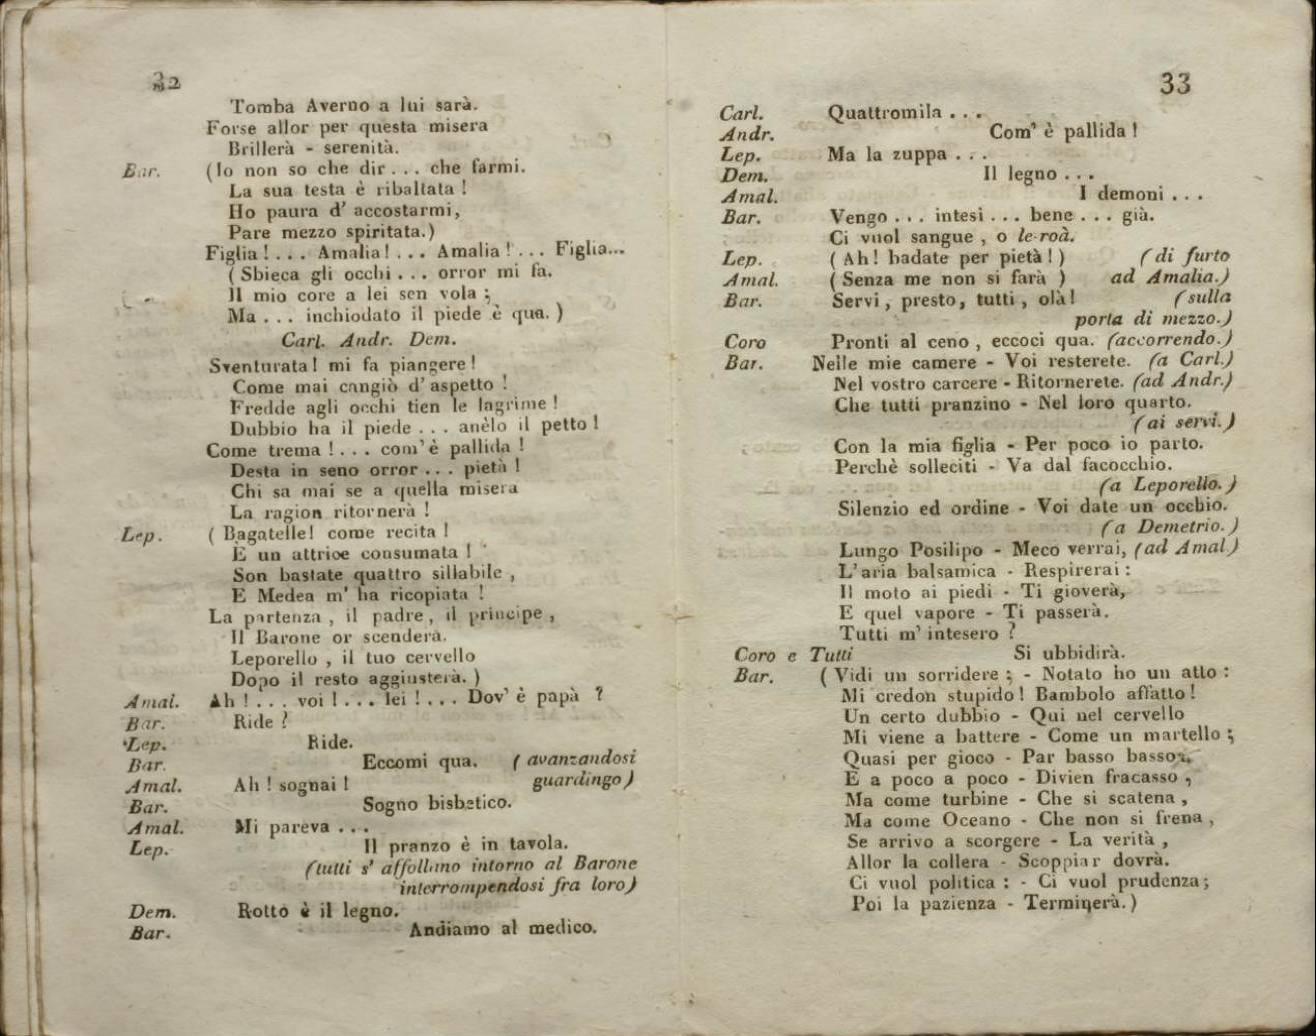 32
Tomba Averno a lui sarà.
Forse allor per questa misera
Brillerà - serenità.
Bar. (Io non so che dir . . . che farmi.
La sua testa è ribaltata !
Ho paura d' accostarmi,
Pare mezzo spiritata.)
Figlia ! . . . Amalia ! . . . Amalia ! . . . Figlia...
( Sbieca gli occhi . . . orror mi fa.
Il mio core a lei sen vola ;
Ma . . . inchiodato il piede è qua. )
Carl. Andr. Dem.
Sventurata ! mi fa piangere !
Come mai cangiò d' aspetto !
Fredde agli occhi tien le lagrime !
Dubbio ha il piede . . . anèlo il petto !
Come trema ! . . . com' è pallida !
Desta in seno orror . . . pietà !
Chi sa mai se a quella misera
La ragion ritornerà !
Lep. ( Bagatelle! come recita !
È un attrice consumata !
Son bastate quattro sillabile ,
E Medea m' ha ricopiata !
La partenza , il padre , il principe ,
Il Barone or scenderà.
Leporello , il tuo cervello
Dopo il resto aggiusterà. )
Amal. Ah ! . . . voi ! . . . lei ! . . . Dov' è papà ?
Bar. Ride ?
Lep. Ride.
Bar. Eccomi qua. ( avanzandosi
Amal. Ah ! sognai ! guardingo )
Bar. Sogno bisbetico.
Amal. Mi pareva . . .
Lep. Il pranzo è in tavola.
(tutti s' affollano intorno al Barone
interrompendosi fra loro)
Dem. Rotto è il legno.
Bar. Andiamo al medico.
33
Carl. Quattromila . . .
Andr. Com' è pallida !
Lep. Ma la zuppa . . .
Dem. Il legno . . .
Amal. I demoni . . .
Bar. Vengo . . . intesi . . . bene . . . già.
Ci vuol sangue , o le-roà.
Lep. ( Ah! badate per pietà ! ) ( di furto
Amal. ( Senza me non si farà ) ad Amalia.)
Bar. Servi , presto, tutti , olà! (sulla
porta di mezzo.)
Coro Pronti al ceno , eccoci qua. (accorrendo.)
Bar. Nelle mie camere - Voi resterete. (a Carl.)
Nel vostro carcere - Ritornerete. (ad Andr.)
Che tutti pranzino - Nel loro quarto.
( ai servi. )
Con la mia figlia - Per poco io parto.
Perchè solleciti - Va dal facocchio.
(a Leporello. )
Silenzio ed ordine - Voi date un occhio.
(a Demetrio. )
Lungo Posilipo - Meco verrai, (ad Amal)
L' aria balsamica - Respirerai :
Il moto ai piedi - Ti gioverà,
E quel vapore - Ti passerà.
Tutti m' intesero ?
Coro e Tutti Si ubbidirà.
Bar. ( Vidi un sorridere ; - Notato ho un atto :
Mi credon stupido ! Bambolo affatto !
Un certo dubbio - Qui nel cervello
Mi viene a battere - Come un martello ;
Quasi per gioco - Par basso basso,
E a poco a poco - Divien fracasso ,
Ma come turbine - Che si scatena ,
Ma come Oceano - Che non si frena ,
Se arrivo a scorgere - La verità ,
Allor la collera - Scoppiar dovrà.
Ci vuol politica : - Ci vuol prudenza ;
Poi la pazienza - Terminerà. )